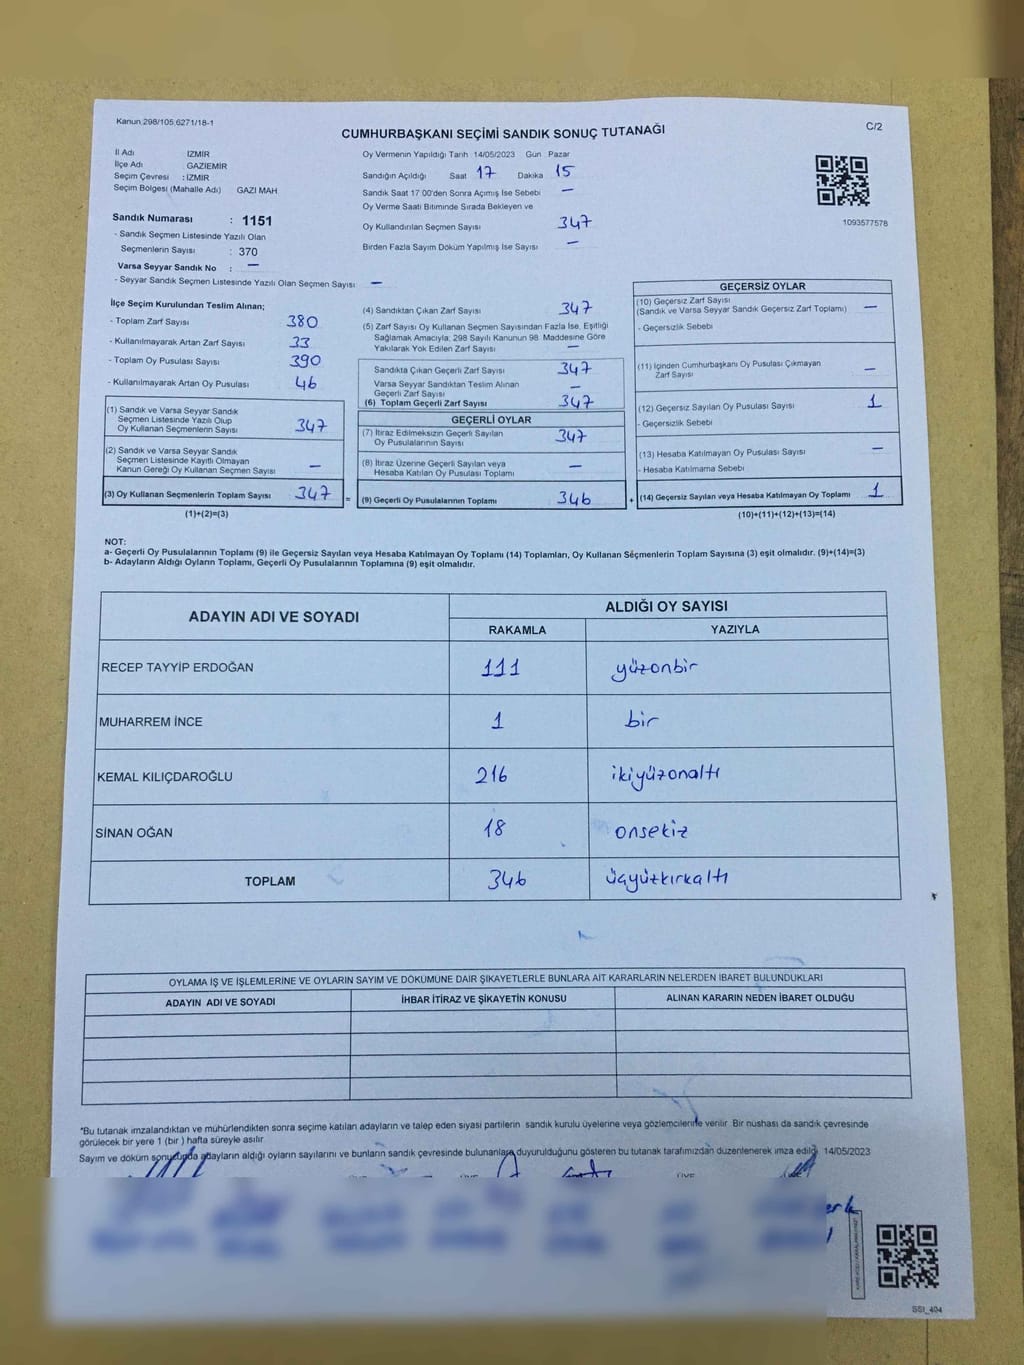 Kanun 298/105 6271/18-1
CUMHURBAŞKANI SEÇİMİ SANDIK SONUÇ TUTANAĞI
C/2
İl Adı İZMİR
İlçe Adı GAZİEMİR
Seçim Çevresi : İZMİR
Seçim Bölgesi (Mahalle Adı) GAZİ MAH
Sandık Numarası : 1151
- Sandık Seçmen Listesinde Yazılı Olan
Seçmenlerin Sayısı : 370
Varsa Seyyar Sandık No : —
- Seyyar Sandık Seçmen Listesinde Yazılı Olan Seçmen Sayısı : —
Oy Vermenin Yapıldığı Tarih 14/05/2023 Gün : Pazar
Sandığın Açıldığı Saat 17 Dakika 15
Sandık Saat 17:00'den Sonra Açımış İse Sebebi —
Oy Verme Saati Bitiminde Sırada Bekleyen ve
Oy Kullandırılan Seçmen Sayısı 347
Birden Fazla Sayım Döküm Yapılmış İse Sayısı —
1093577578
İlçe Seçim Kurulundan Teslim Alınan;
- Toplam Zarf Sayısı 380
- Kullanılmayarak Artan Zarf Sayısı 33
- Toplam Oy Pusulası Sayısı 390
- Kullanılmayarak Artan Oy Pusulası 46
(1) Sandık ve Varsa Seyyar Sandık
Seçmen Listesinde Yazılı Olup
Oy Kullanan Seçmenlerin Sayısı 347
(2) Sandık ve Varsa Seyyar Sandık
Seçmen Listesinde Kayıtlı Olmayan
Kanun Gereği Oy Kullanan Seçmen Sayısı —
(3) Oy Kullanan Seçmenlerin Toplam Sayısı 347 =
(1)+(2)=(3)
(4) Sandıktan Çıkan Zarf Sayısı 347
(5) Zarf Sayısı Oy Kullanan Seçmen Sayısından Fazla İse, Eşitliği
Sağlamak Amacıyla, 298 Sayılı Kanunun 98. Maddesine Göre
Yakılarak Yok Edilen Zarf Sayısı —
Sandıkta Çıkan Geçerli Zarf Sayısı 347
Varsa Seyyar Sandıktan Teslim Alınan
Geçerli Zarf Sayısı —
(6) Toplam Geçerli Zarf Sayısı 347
GEÇERLİ OYLAR
(7) İtiraz Edilmeksizin Geçerli Sayılan
Oy Pusulalarının Sayısı 347
(8) İtiraz Üzerine Geçerli Sayılan veya
Hesaba Katılan Oy Pusulası Toplamı —
(9) Geçerli Oy Pusulalarının Toplamı 346 +
GEÇERSİZ OYLAR
(10) Geçersiz Zarf Sayısı
(Sandık ve Varsa Seyyar Sandık Geçersiz Zarf Toplamı) —
- Geçersizlik Sebebi
(11) İçinden Cumhurbaşkanı Oy Pusulası Çıkmayan
Zarf Sayısı —
(12) Geçersiz Sayılan Oy Pusulası Sayısı 1
- Geçersizlik Sebebi
(13) Hesaba Katılmayan Oy Pusulası Sayısı —
- Hesaba Katılmama Sebebi
(14) Geçersiz Sayılan veya Hesaba Katılmayan Oy Toplamı 1
(10)+(11)+(12)+(13)=(14)
NOT:
a- Geçerli Oy Pusulalarının Toplamı (9) ile Geçersiz Sayılan veya Hesaba Katılmayan Oy Toplamı (14) Toplamları, Oy Kullanan Seçmenlerin Toplam Sayısına (3) eşit olmalıdır. (9)+(14)=(3)
b- Adayların Aldığı Oyların Toplamı, Geçerli Oy Pusulalarının Toplamına (9) eşit olmalıdır.
ADAYIN ADI VE SOYADI ALDIĞI OY SAYISI
RAKAMLA YAZIYLA
RECEP TAYYİP ERDOĞAN 111 yüzonbir
MUHARREM İNCE 1 bir
KEMAL KILIÇDAROĞLU 216 ikiyüzonaltı
SİNAN OĞAN 18 onsekiz
TOPLAM 346 üçyüzkırkaltı
OYLAMA İŞ VE İŞLEMLERİNE VE OYLARIN SAYIM VE DÖKÜMÜNE DAİR ŞİKAYETLERLE BUNLARA AİT KARARLARIN NELERDEN İBARET BULUNDUKLARI
ADAYIN ADI VE SOYADI İHBAR İTİRAZ VE ŞİKAYETİN KONUSU ALINAN KARARIN NEDEN İBARET OLDUĞU
*Bu tutanak imzalandıktan ve mühürlendikten sonra seçime katılan adayların ve talep eden siyasi partilerin sandık kurulu üyelerine veya gözlemcilerine verilir. Bir nüshası da sandık çevresinde
görülecek bir yere 1 (bir ) hafta süreyle asılır.
Sayım ve döküm sonucunda adayların aldığı oyların sayılarını ve bunların sandık çevresinde bulunanlara duyurulduğunu gösteren bu tutanak tarafımızdan düzenlenerek imza edildi. 14/05/2023
SSI_404